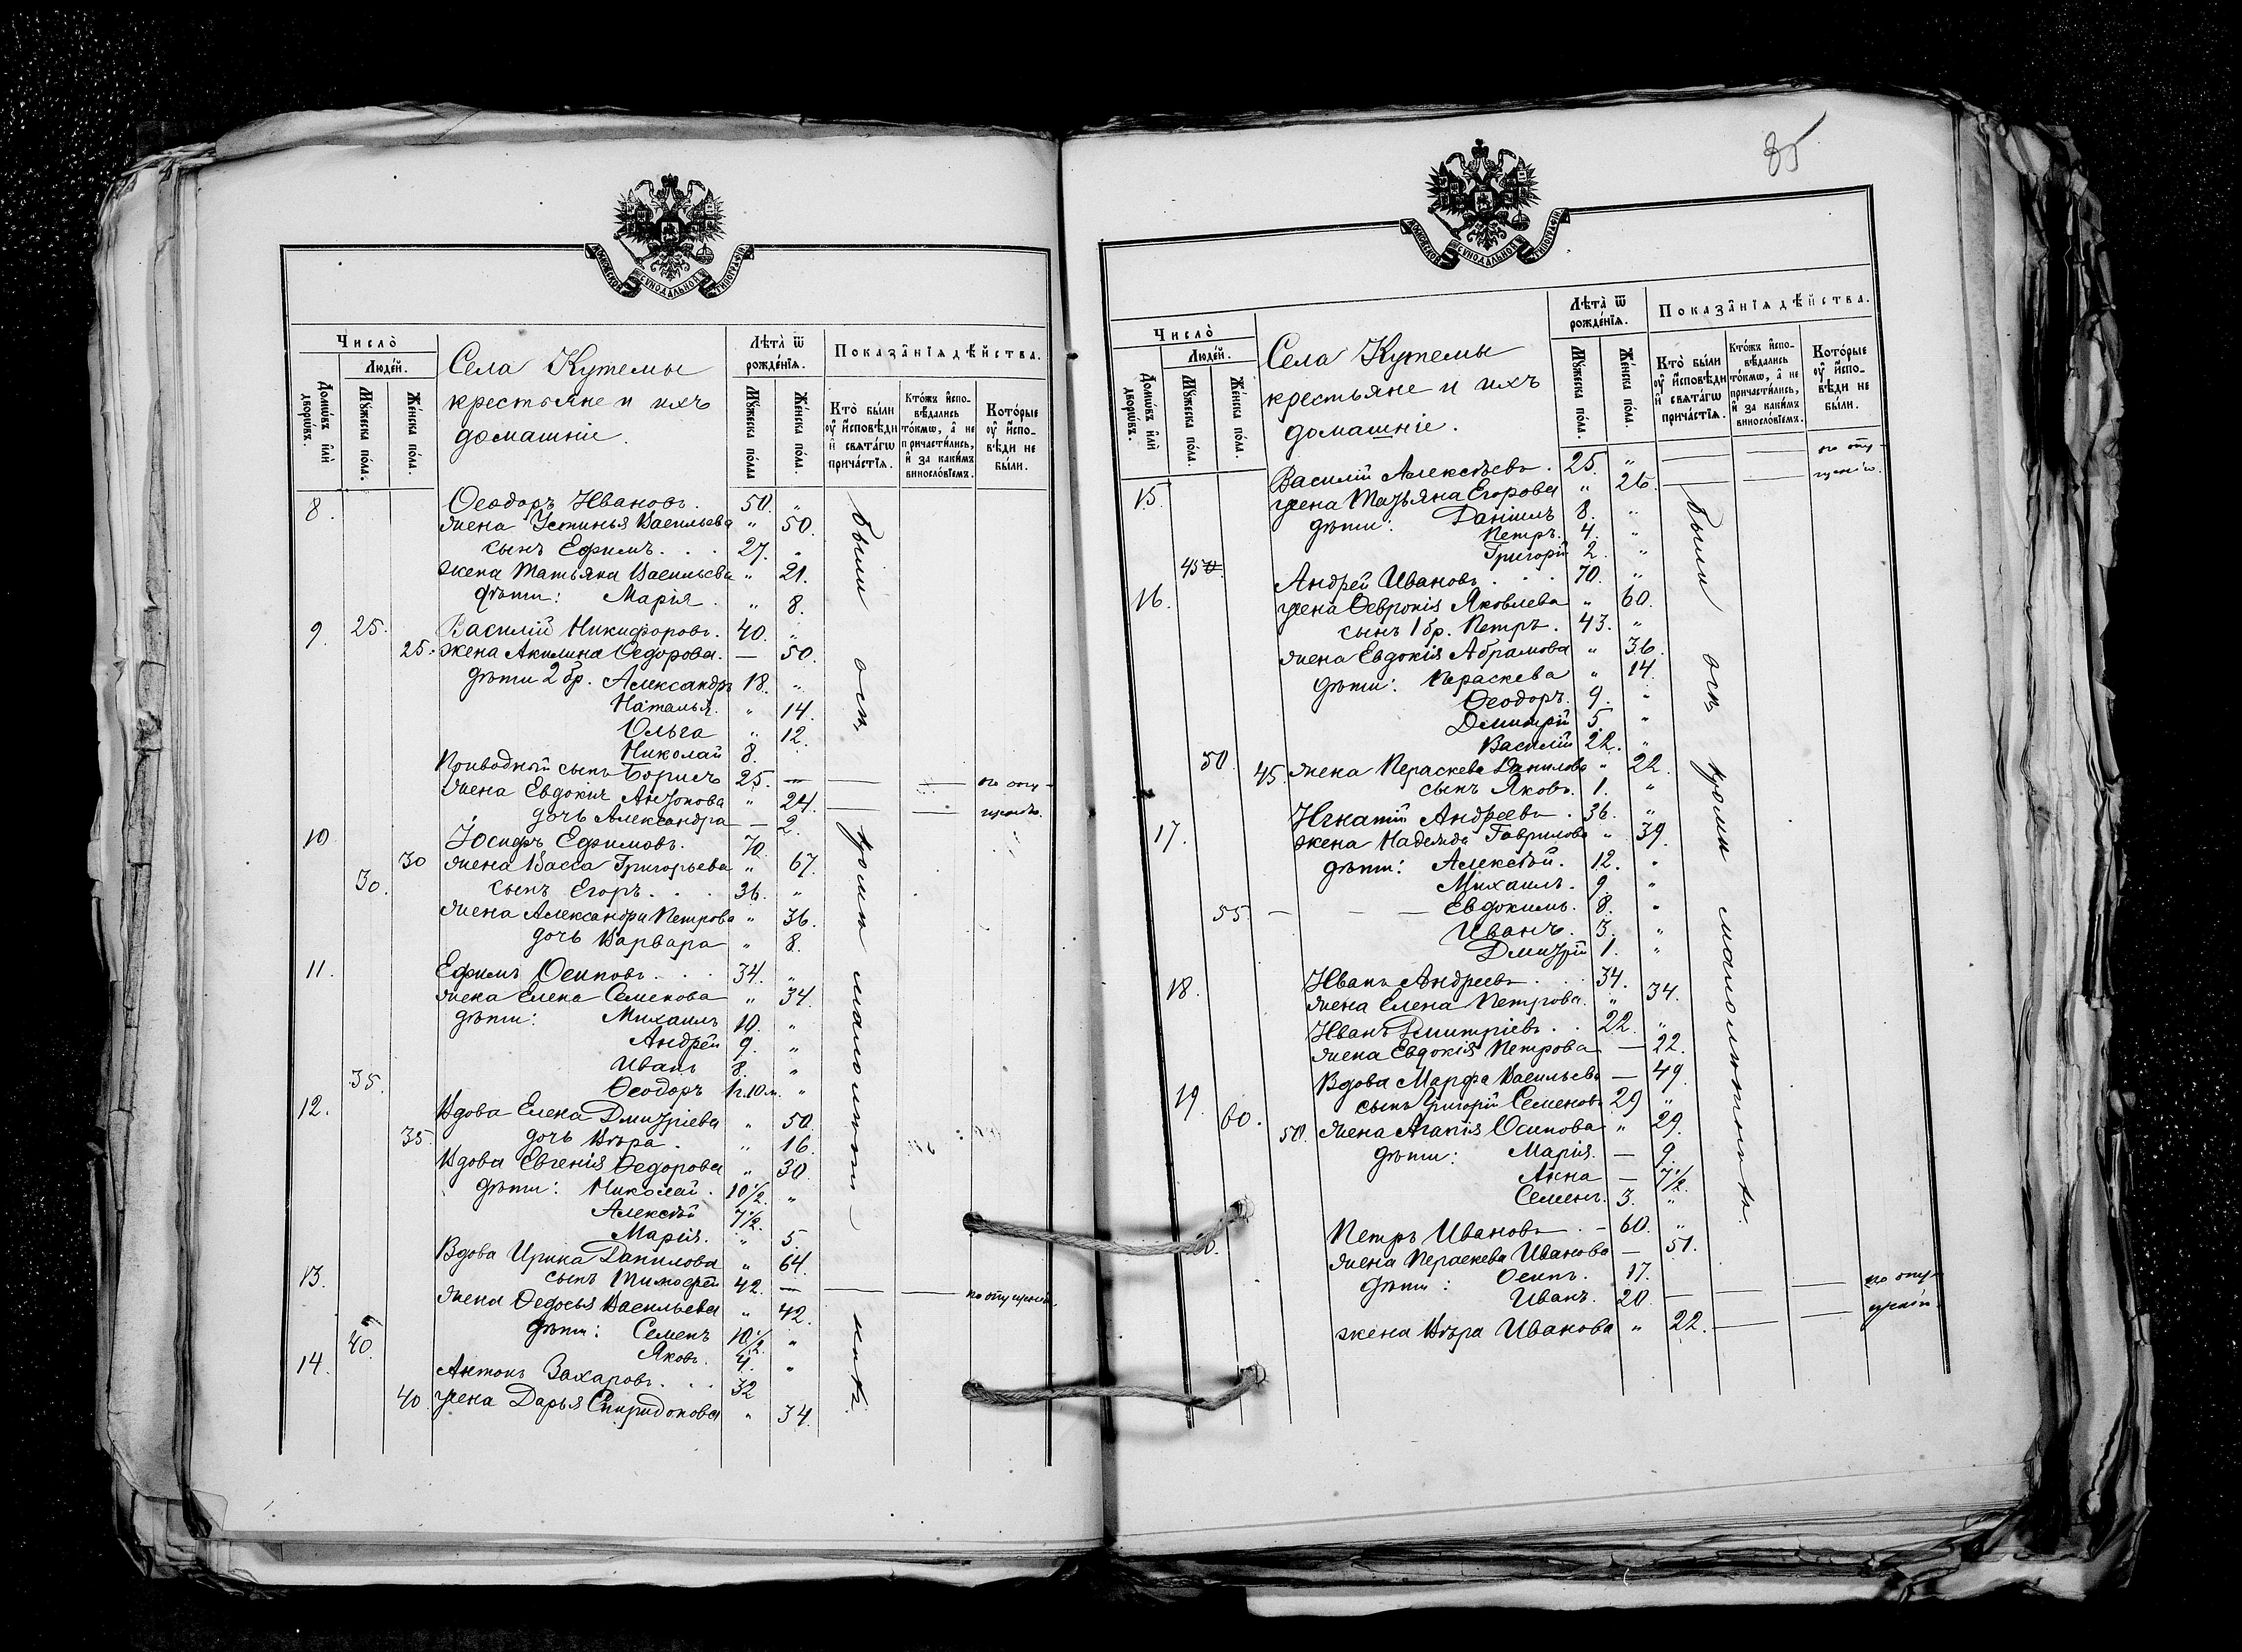 МОСКОВСКОЙ СѴНОДАЛЬНОЙ ТИПОГРАФІИ
Число̀
Людей.
Домѡвъ и҆лѝ дворѡвъ.
Мꙋжеска пола.
Же́нска пола.
Села Кутемы
крестьяне и ихъ
домашніе.
Лѣта̀ ѿ рожде́нїѧ.
Мꙋжеска пола
Же́нска по́ла.
Показа̑нїѧ дѣ́йства.
Кто̀ бы́ли оу҆ и҆сповѣди и҆ свѧта́гѡ прича́стїѧ.
Кто́жъ и҆спо-вѣдались то́кмѡ, а҆ не причасти́лись, и҆ за каки́мъ винослѡвїемъ.
Кото́рые оу҆ и҆спо-вѣди не бы́ли.
8. Ѳеодоръ Ивановъ. 50. "
жена Устинья Васильева " 50.
сынъ Ефимъ. . . 27. "
жена Татьяна Васильева " 21.
дѣти: Марія. " 8.
9. 25. Василій Никифоровъ. 40. "
25. жена Акилина Ѳедорова. — 50.
дѣти 2 бр. Александръ 18. "
Наталья. " 14.
Ольга " 12.
Николай 8.
Приводный сынъ Борисъ 25. —
жена Евдокія Антонова " 24.
дочь Александра — 2.
10 Іосифъ Ефимовъ. 70.
30 жена Васса Григорьева " 67.
30. сынъ Егоръ. . . 36. "
жена Александра Петрова " 36.
дочь Варвара " 8.
11. Ефимъ Осиповъ. . . 34. "
жена Елена Семенова " 34.
дѣти: Михаилъ 10. "
Андрей 9. "
Иванъ 8. "
35. Ѳеодоръ 1 г. 10 м. "
12. Вдова Елена Дмитріева " 50.
35. дочь Вѣра. " 16.
Вдова Евгенія Ѳедорова " 30
дѣти: Николай. 10½. "
Алексѣй 7½.
Марія. " 5
Вдова Ирина Данилова " 64.
13. сынъ Тимофей 42. — — — по опущенію.
жена Ѳедосья Васильева " 42.
дѣти: Семенъ 10½. "
40. Яковъ. 4. "
14. Антонъ Захаровъ. . . 32
40. жена Дарья Спиридонова " 34.
были всѣ кромѣ малолѣтнихъ.
35
МОСКОВСКОЙ СѴНОДАЛЬНОЙ ТИПОГРАФІИ
Число̀
Людей.
Домѡвъ и҆лѝ дворѡвъ.
Мꙋжеска пола.
Же́нска пола.
Села Кутемы
крестьяне и ихъ
домашніе.
Лѣта̀ ѿ рожде́нїѧ.
Мꙋжеска пола.
Же́нска пола.
Показа̑нїѧ дѣ́йства.
Кто̀ бы́ли оу҆ и҆сповѣди и҆ свѧта́гѡ прича́стїѧ.
Кто́жъ и҆спо-вѣдались то́кмѡ, а҆ не причасти́лись, и҆ за каки́мъ винослѡвїемъ.
Кото́рые оу҆ и҆спо-вѣди не бы́ли.
15. Василій Алексѣевъ. 25. " — — по опу-
жена Татьяна Егорова " 26. — — щенію.
дѣти: Даніилъ 8. "
Петръ. 4. "
Григорій 2. "
45
16. Андрей Ивановъ . . . 70. "
жена Февронія Яковлева " 60.
сынъ 1 бр. Петръ. 43. "
жена Евдокія Абрамова " 36.
дѣти: Параскева " 14.
Ѳеодоръ. 9. "
Дмитрій 5. "
50. Василій 22. "
45. жена Параскева Данилова " 22.
сынъ Яковъ. 1. "
17. Игнатій Андреевъ. 36. "
жена Надежда Гаврилова " 39.
дѣти: Алексѣй. 12. "
Михаилъ. 9. "
55. — — — Евдокимъ. 8. "
Иванъ. 3. "
Дмитрій 1. "
18. Иванъ Андреевъ . . 34. "
жена Елена Петрова. " 34.
Иванъ Дмитріевъ . . 22. "
жена Евдокія Петрова — 22.
Вдова Марфа Васильева — 49.
19. 60. сынъ Григорій Семеновъ 29 "
50. жена Агапія Осипова " 29.
дѣти: Марія. — 9.
Анна — 7½.
Семенъ. 3. "
Петръ Ивановъ . — 60. "
жена Параскева Иванова — 51.
дѣти: Осипъ. 17.
Иванъ. 20. — — — по опу-
жена Вѣра Иванова " 22. — — щенію.
были всѣ кромѣ малолѣтнихъ.